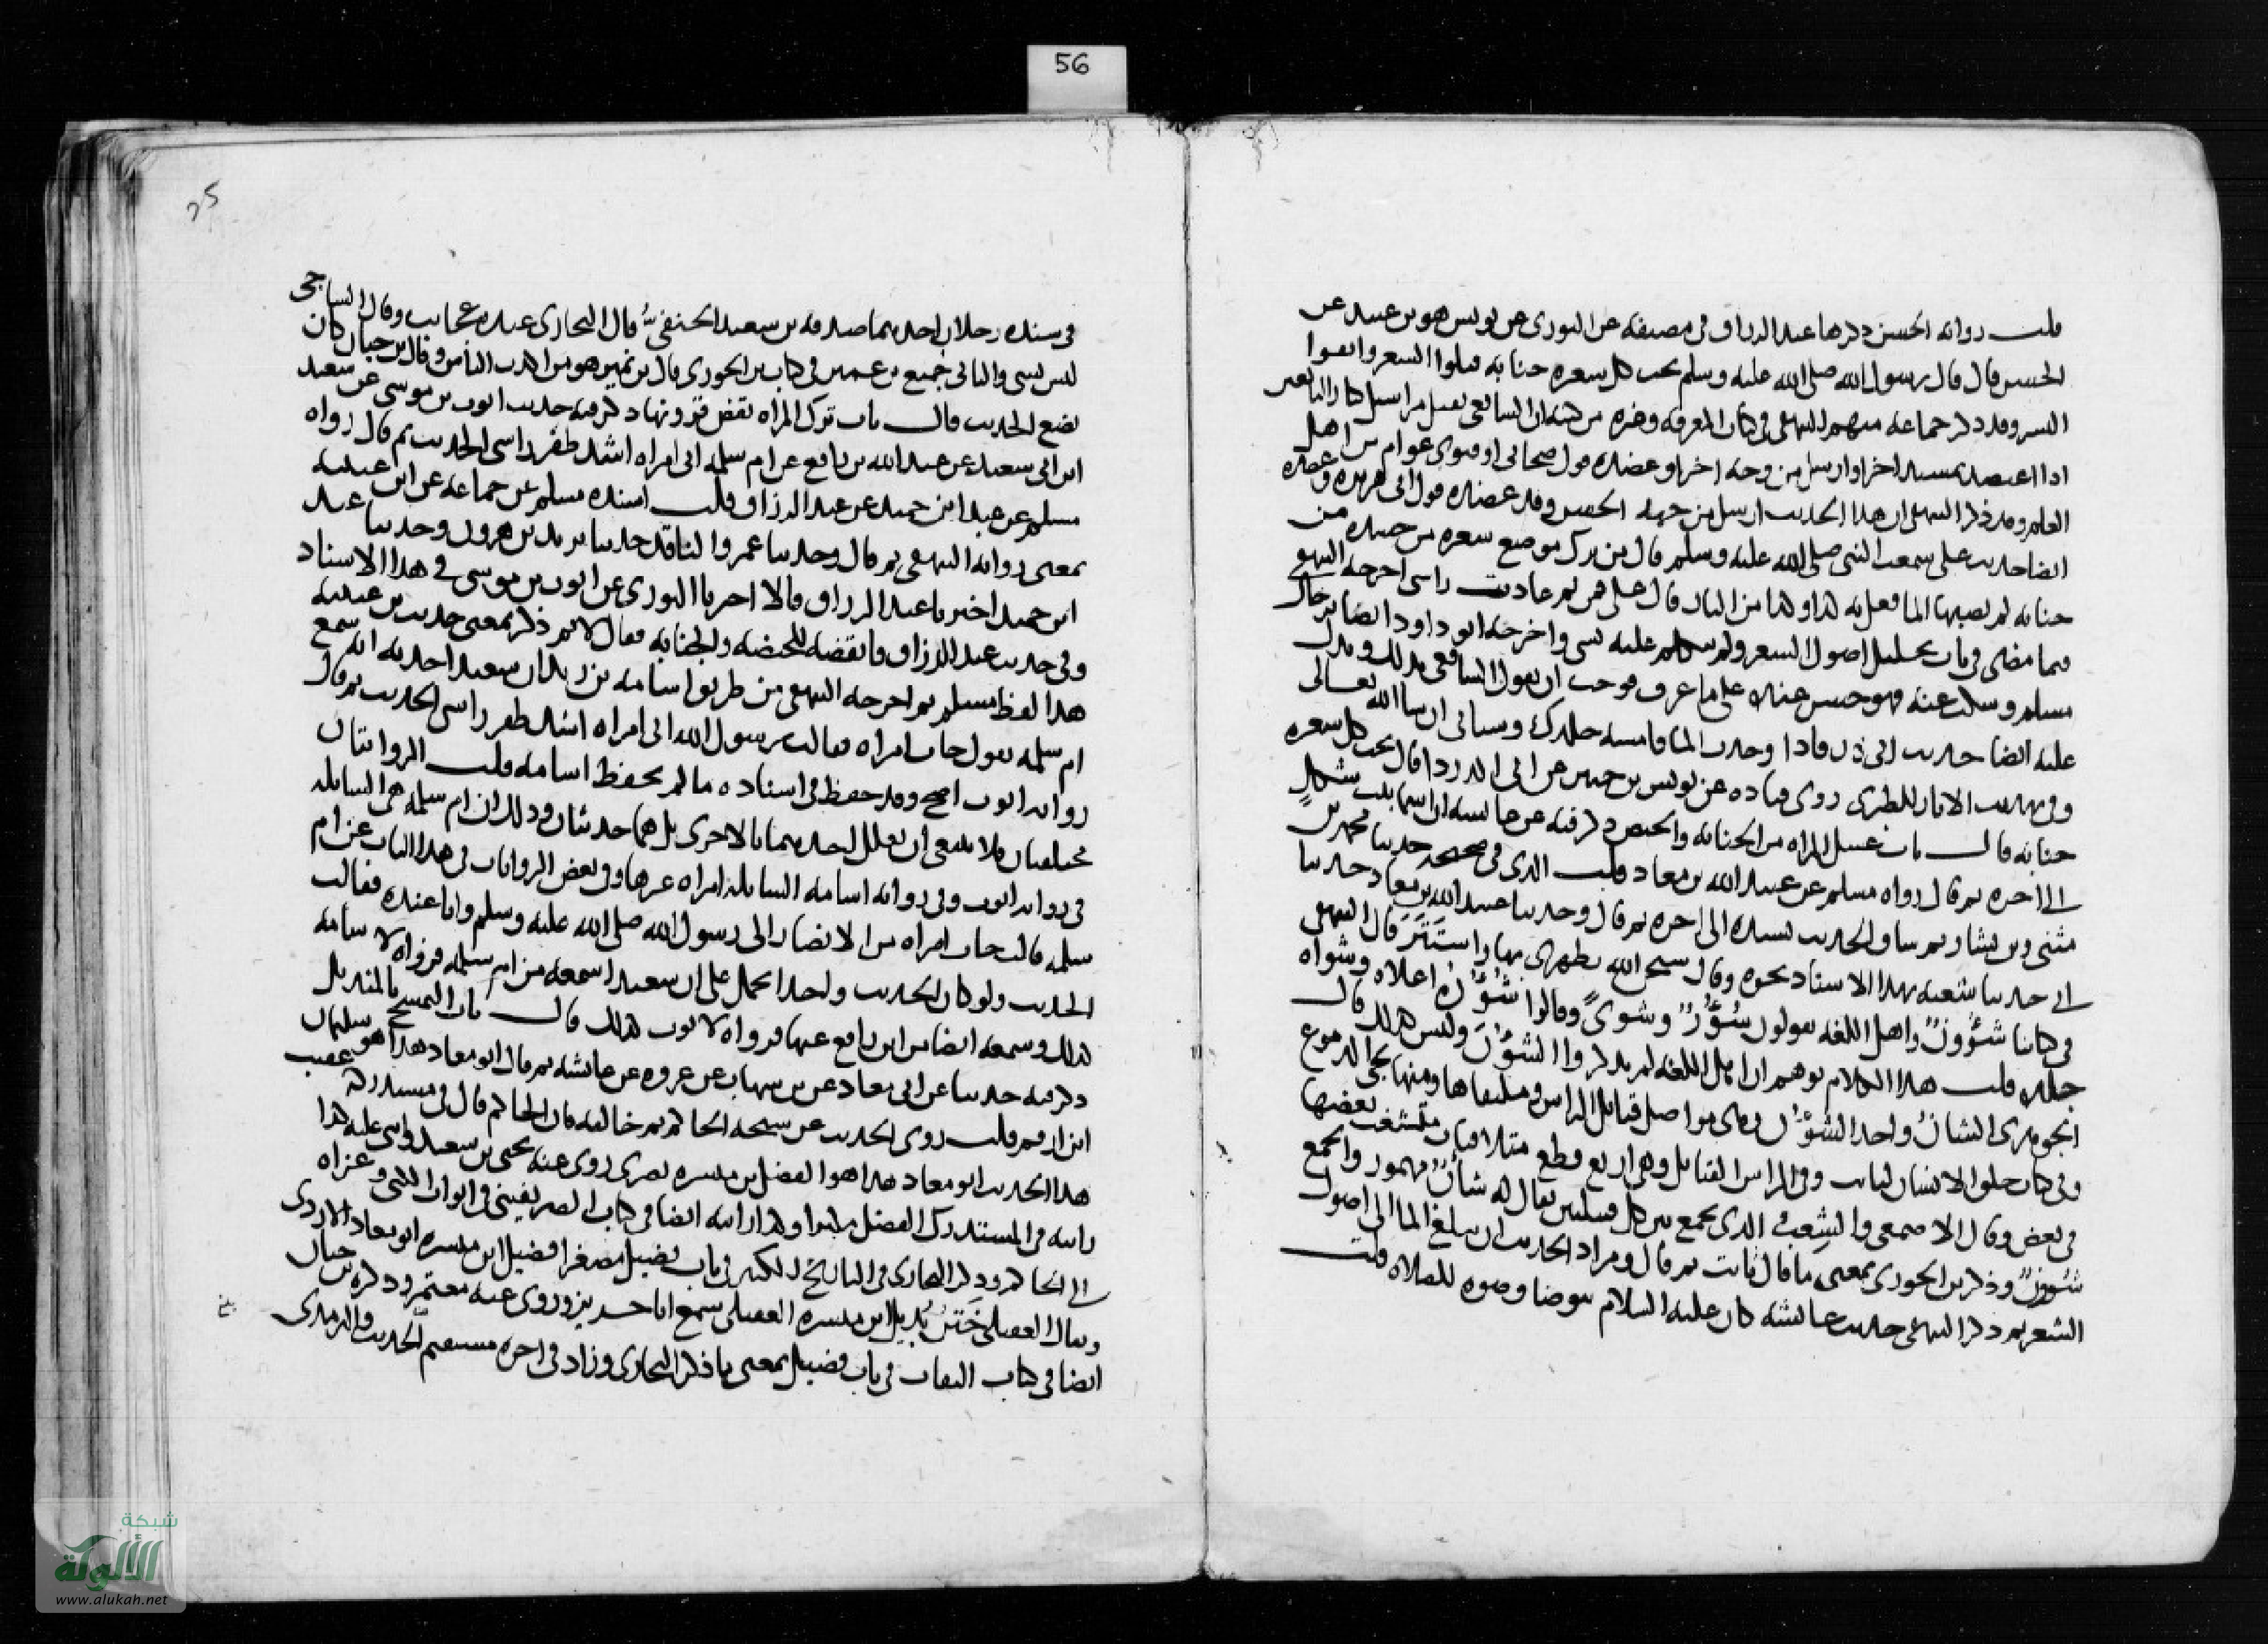 56
قلت رواية الحسن ذكرها عبد الرزاق في مصنفه عن الثوري عن يونس هو بن عبيد عن
الحسن قال قال رسول الله صلى الله عليه وسلم تحت كل شعرة جنابة فبلوا الشعر وانقوا
البشر وقد ذكر جماعة منهم البيهقي في كتاب المعرفة وغيره من كتبه ان الشافعي يقبل مراسيل كبار التابعين
اذا اعتضد بمسند اخر او ارسل من وجه اخر او عضده قول صحابي او فتوى عوام من اهل
العلم وقد ذكر البيهقي ان هذا الحديث ارسل من جهة الحسن وقد عضده قول ابي هريرة وعضده
ايضا حديث علي سمعت النبي صلى الله عليه وسلم قال من ترك موضع شعرة من جسده من
جنابة لم يصبها الما فعل به كذا وكذا من النار قال علي فمن ثم عاديت راسي اخرجه البيهقي
فيما مضى في باب تخليل اصول الشعر ولم يتكلم عليه بشي واخرجه ابو داود ايضا برجال
مسلم وسكت عنه فهو حسن عنده على ما عرف فوجب ان يقول الشافعي بذلك ويدل
عليه ايضا حديث ابي ذر فاذا وجدت الما فامسه جلدك وسياتي ان شا الله تعالى
وفي تهذيب الاثار للطبري روى قتادة عن يونس بن جبير عن ابي الدردا قال تحت كل شعرة
جنابة قال باب غسل المراه من الجنابة والحيض ذكر فيه عن عايشة ان اسما بنت شكل
الى اخره ثم قال رواه مسلم عن عبيد الله بن معاذ قلت الذي في صحيحه حدثنا محمد بن
مثنى وبن بشار ثم ساق الحديث بسنده الى اخره ثم قال وحدثنا عبيد الله بن معاذ حدثنا
ابي حدثنا شعبة بهذا الاسناد نحوه وقال سبحن الله تطهري بها واستتر قال البيهقي
في كتابنا شؤون واهل اللغة يقولون سؤر وشوى وقالوا شؤن اعلاه وشواه
جلده قلت هذا الكلام يوهم ان اهل اللغة لم يذكروا الشؤن وليس كذلك قال
الجوهري الشان واحد الشؤن وهي مواصل قبائل الراس وملتقاها ومنها تجي الدموع
وفي كتاب خلق الانسان لثابت وفي الراس القبايل وهي اربع قطع متلاقيات متشعب بعضها
في بعض وقال الاصمعي والشعب الذي يجمع بين كل قبيلتين يقال له شان مهموز والجمع
شؤون وذكر بن الجوزي بمعنى ما قال ثابت ثم قال ومراد الحديث ان يبلغ الما الى اصول
الشعر ثم ذكر البيهقي حديث عايشة كان عليه السلام يتوضا وضوه للصلاه قلت
25
في سنده رجلان احدهما صدقة بن سعيد الحنفي قال البخاري عنده عجايب وقال الساجي
ليس بشي والثاني جميع بن عمير في كتاب بن الجوزي قال بن نمير هو من اكذب الناس وقال بن حبان كان
يضع الحديث قال باب ترك المراه نقض قرونها ذكر فيه حديث ايوب بن موسى عن سعيد
ابن ابي سعيد عن عبد الله بن رافع عن ام سلمة اني امراه اشد ظفر راسي الحديث ثم قال رواه
مسلم عن عبد ابن حميد عن عبد الرزاق قلت اسنده مسلم عن جماعة عن ابن عيينة
بمعنى رواية البيهقي ثم قال وحدثنا عمرو الناقد حدثنا يزيد بن هرون وحدثنا عبد
ابن حميد اخبرنا عبد الرزاق قالا اخبرنا الثوري عن ايوب بن موسى في هذا الاسناد
وفي حديث عبد الرزاق فانقضه للحيضة والجنابة فقال لا ثم ذكر بمعنى حديث بن عيينة
هذا لفظ مسلم ثم اخرجه البيهقي من طريق اسامة بن زيد ان سعيدا حدثه انه سمع
ام سلمة تقول جات امراه فقالت يرسول الله اني امراه اشد ظفر راسي الحديث ثم قال
رواية ايوب اصح وقد حفظ في اسناده ما لم يحفظ اسامة قلت الروايتان
مختلفتان فلا ينبغي ان تعلل احديهما بالاخرى بل هما حديثان وذلك ان ام سلمة هي السايلة
في رواية ايوب وفي رواية اسامة السايلة امراه غيرها وفي بعض الروايات في هذا الباب عن ام
سلمة قالت جات امراه من الانصار الى رسول الله صلى الله عليه وسلم وانا عنده فقالت
الحديث ولو كان الحديث واحدا يحمل على ان سعيدا سمعه من ام سلمة فرواه لاسامة
كذلك وسمعه ايضا من ابن رافع عنها فرواه لايوب كذلك قال باب التمسح بالمنديل
ذكر فيه حديثا عن ابي معاذ عن بن شهاب عن عروة عن عايشة ثم قال ابو معاذ هذا هو سليمان
ابن ارقم قلت روى الحديث عن شيخه الحاكم ثم خالفه فان الحاكم قال في مستدركه عقيب
هذا الحديث ابو معاذ هذا هو الفضل بن ميسره بصري روى عنه يحيى بن سعيد واثنى عليه كذا
رايته في المستدرك الفضل مكبرا وكذا رايته ايضا في كتاب الصريفيني في ابواب الكنى وعزاه
الى الحاكم وذكر البخاري في التاريخ الكبير في باب فضيل مصغرا فضيل ابن ميسره ابو معاذ الازدي
ويقال العقيلي ختن بديل ابن ميسره العقيلي سمع ابا حريز وروى عنه معتمر وذكره بن حبان
ايضا في كتاب الثقات في باب فضيل بمعنى ما ذكر البخاري وزاد في اخره مستقيم الحديث والترمذي
شبكة
الألوكة
www.alukah.net